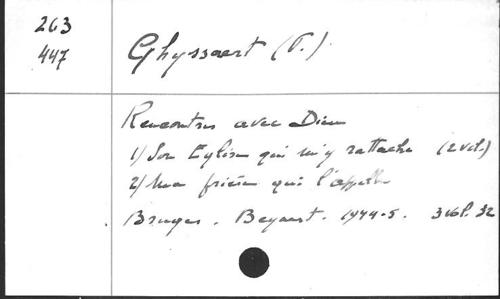 263
447
Ghyssaert (P.)
Rencontres avec Dieu
1/ Son Eglise qui m'y rattache (2 vol.)
2/ Ma prière qui l'appelle
Bruges. Beyaert. 1944-5. 3 vol. 32